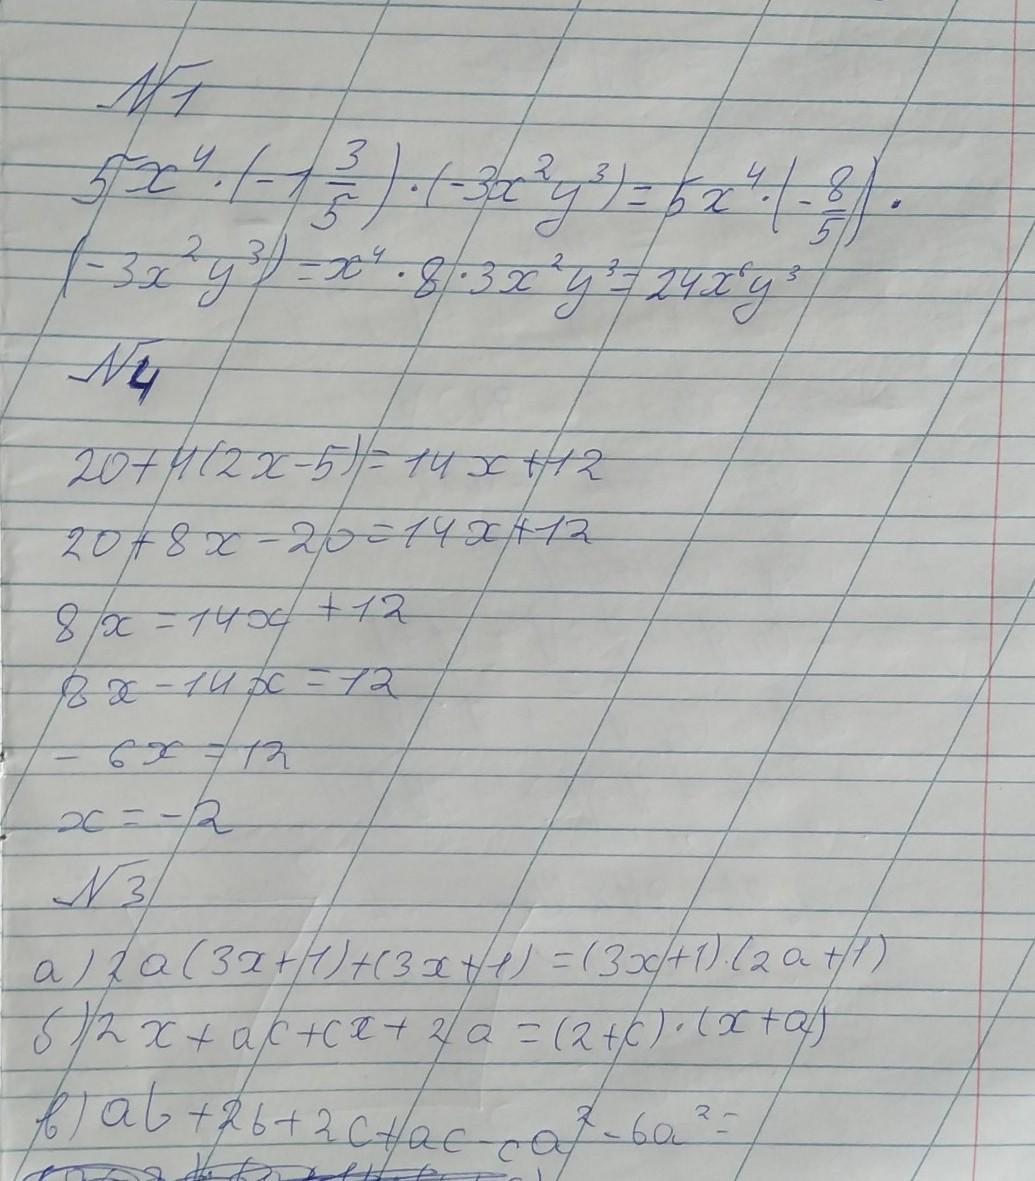 №1
5x⁴·(-1 3/5)·(-3x²y³)=5x⁴·(-8/5)·
(-3x²y³)=x⁴·8·3x²y³=24x⁶y³
№4
20+4(2x-5)=14x+12
20+8x-20=14x+12
8x=14x+12
8x-14x=12
-6x=12
x=-2
№3
а) 2a(3x+1)+(3x+1)=(3x+1)·(2a+1)
б) 2x+ac+cx+2a=(2+c)·(x+a)
в) ab+2b+2c+ac-ca²-ba²=